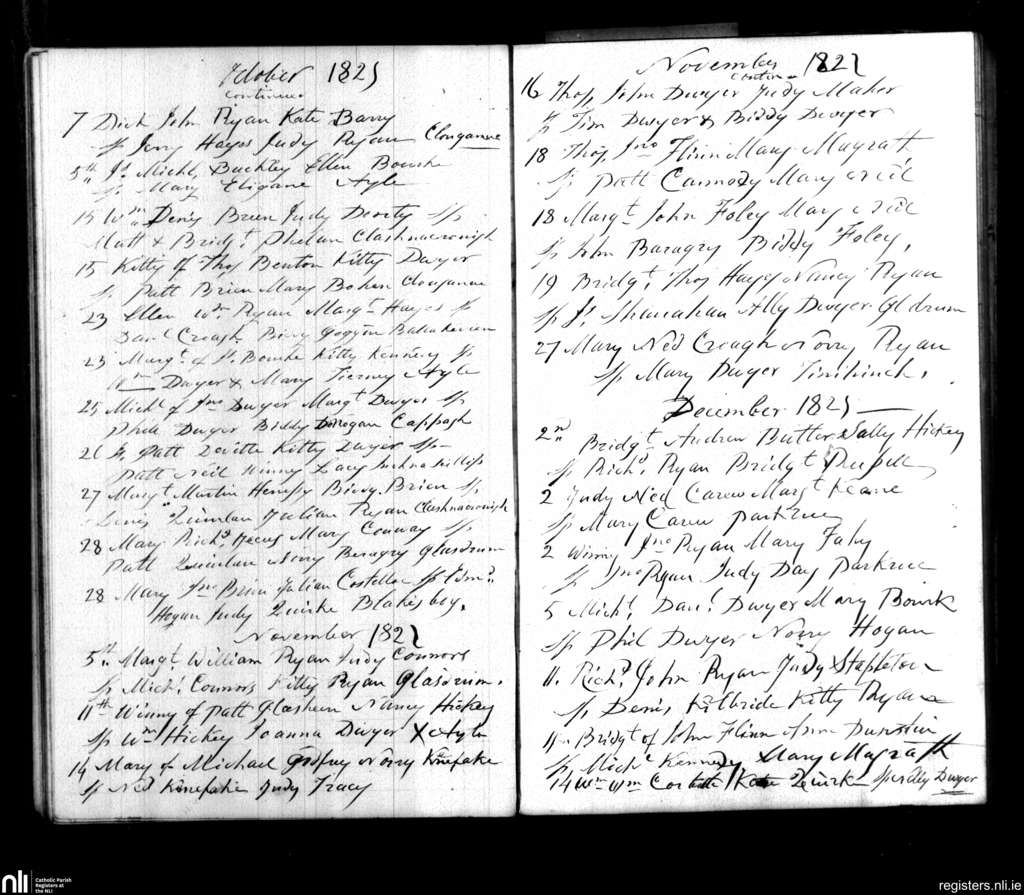 October 1825
Continued
7 Dick John Ryan Kate Barry
Sp Jerry Hayes Judy Ryan Clonganue
5th Js. Michl. Buckley Ellen Bourke
Sp Mary Eligane Ayle
15 Wm Denis Brien Judy Deorty Sp
Matt & Bridgt. Phelan Clashnacronigh
15 Kitty of Thos Benton Kitty Dwyer
Sp Patt Brien Mary Bohen Clonganue
23 Ellen Wm Ryan Margt. Hayes Sp
Danl Creagh Biddy
23 Margt. of Js. Bourke Kitty Kennedy Sp
Wm Dwyer & Mary Tierney Ayle
25 Michl of Jno Dwyer Margt Dwyer Sp
Phil Dwyer Biddy Donogan Cappagh
26 Patt Kitty Dwyer Sp
Patt Neil Winny Lacy
27 Margt Martin Henessy Biddy Brien Sp.
Denis Quinlan Julian Ryan Clashnacronigh
28 Mary Richd. Mary Conway Sp
Patt Quinlan Norry Beragry Glasdrum
28 Mary Jno Brien Julian Costello Sp Edmd.
Hogan Judy Quirke Blakesboy.
November 1825
5th. Margt. William Ryan Judy Connors
Sp Michl. Connors Kitty Ryan Glasdrum.
11th Winny of Patt Glasheen Nancy Hickey
Sp Wm Hickey Joanna Dwyer X Ayle
14 Mary of Michael Godfrey Norry Kinefake
Sp Ned Kinefake Judy Tracy
November 1825
Contin
16 Thos John Dwyer Judy Maher
Sp Tim Dwyer & Biddy Dwyer
18 Thos Jno Flinn Mary Magrath
Sp Patt Carmody Mary Neil
18 Margt John Foley Mary Neil
Sp John Baragry Biddy Foley.
19 Bridgt. Thos Hayes Nancy Ryan
Sp Js. Shanahan Ally Dwyer Gldrum
27 Mary Ned Creagh Norry Ryan
Sp Mary Dwyer Tinihinch.
December 1825
2nd Bridgt Andrew Butler Sally Hickey
Sp Richd. Ryan Bridgt
2 Judy Ned Carew Margt Keane
Sp Mary Carew Parkrue
2 Winny Jno Ryan Mary Fahy
Sp Jno Ryan Judy Day Parkrue
5 Michl. Danl. Dwyer Mary Bourk
Sp Phil Dwyer Norry Hogan
11. Richd. John Ryan Judy Stapleton
Sp Denis Kilbride Kitty Ryan
11. Bridgt of John Flinn Ann
Sp Michl Kennedy Mary Magrath
14 Wm Wm Kate Quirke Sp Dwyer
nli
Catholic Parish
Registers at
the NLI
registers.nli.ie